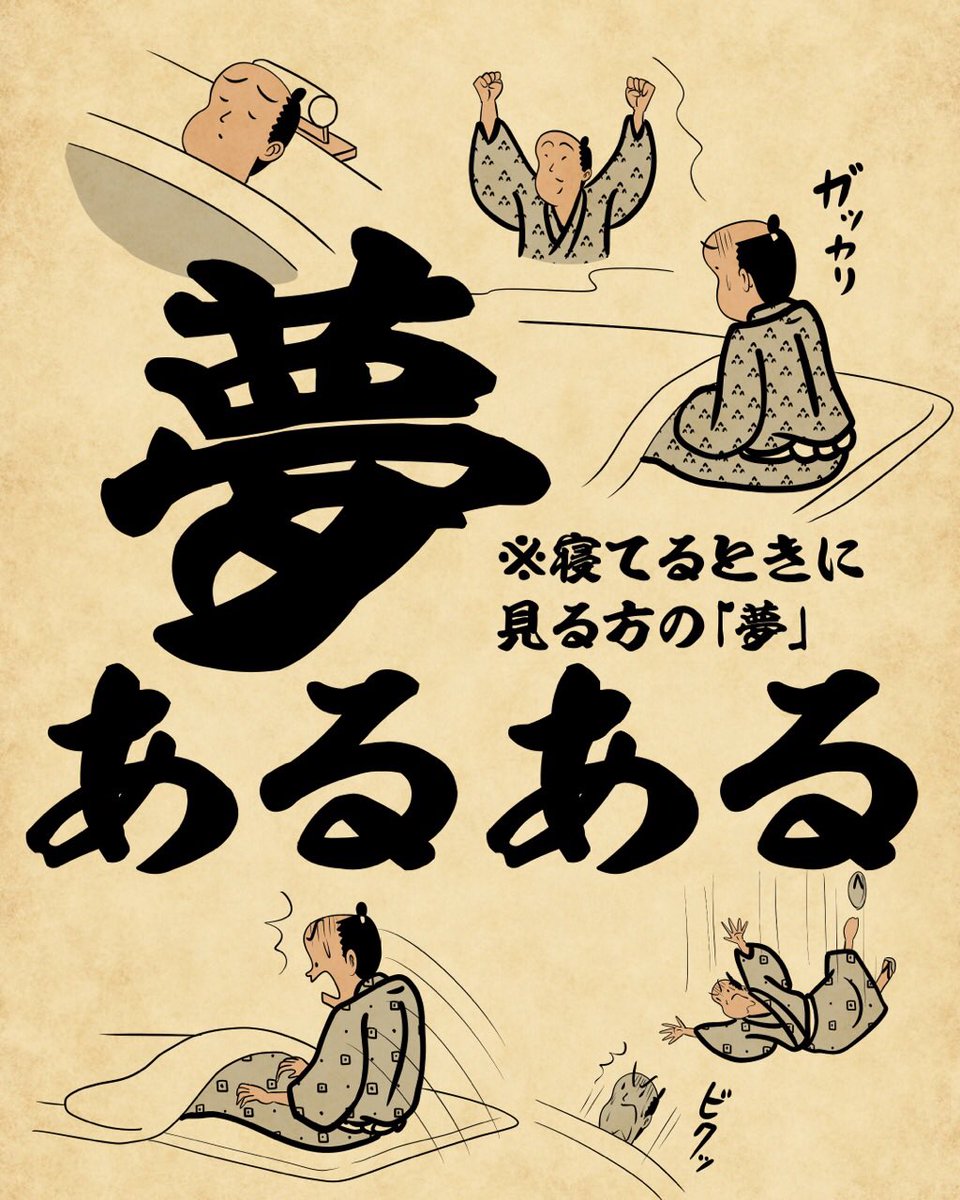 ガッカリ
夢
※寝てるときに
見る方の「夢」
あるある
ビクッ